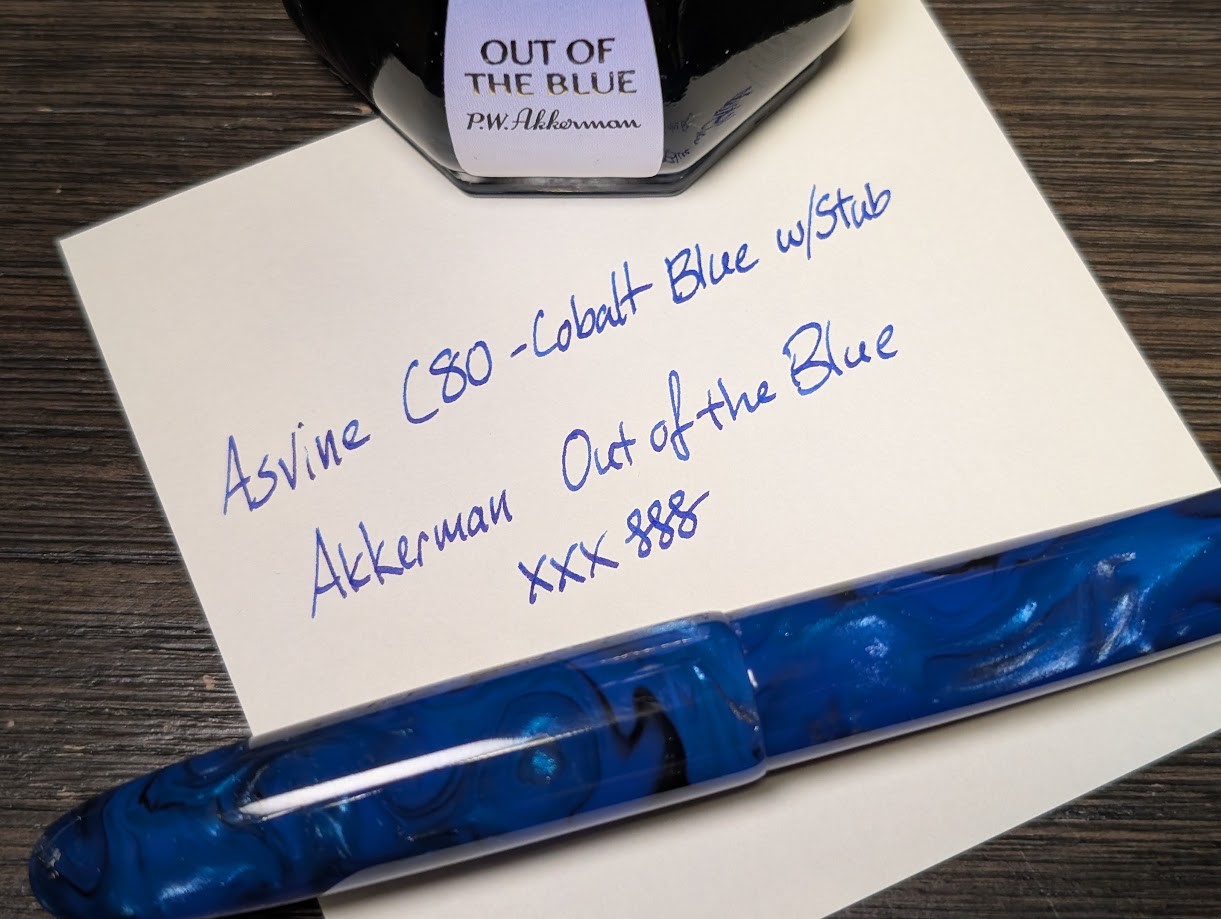 OUT OF
THE BLUE
P.W. Akkerman
Asvine C80 - Cobalt Blue w/Stub
Akkerman Out of the Blue
xxx 888